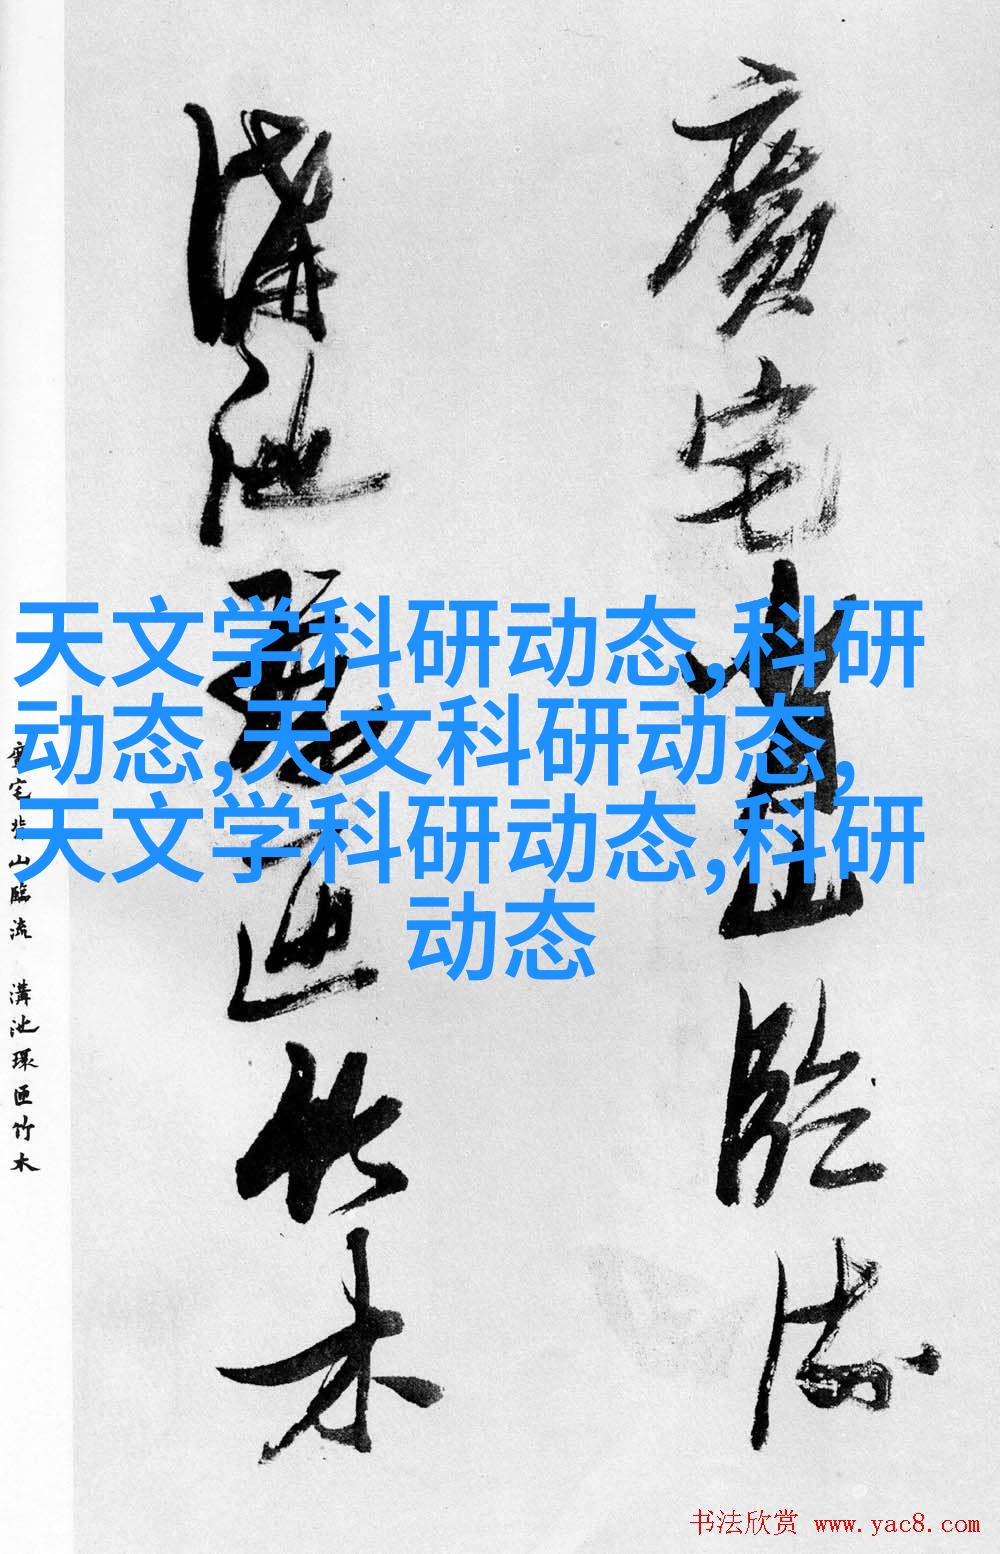 廣宅背山臨流
溝池環匝竹木
天文学科研动态,科研
动态,天文科研动态,
天文学科研动态,科研
动态
廣宅背山臨流 溝池環匝竹木
书法欣赏 www.yac8.com